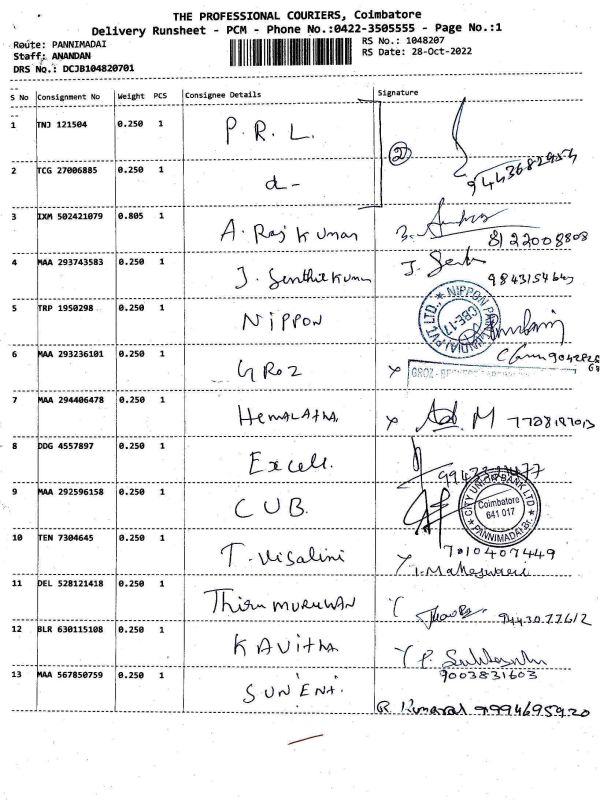 THE PROFESSIONAL COURIERS, Coimbatore
Delivery Runsheet - PCM - Phone No.:0422-3505555 - Page No.:1
Route: PANNIMADAI
RS No.: 1048207
Staff: ANANDAN
RS Date: 28-Oct-2022
DRS No.: DCJB104820701
S No Consignment No Weight PCS Consignee Details Signature
1 TNJ 121504 0.250 1 P.R.L.
2 TCG 27006885 0.250 1 d- 2
3 IXM 502421079 0.805 1 A. Raj Kumar 8122008808
4 MAA 293743583 0.250 1 J. Senthil Kumar J.
5 TRP 1950298 0.250 1 NIPPON
NIPPON PAN PVT LTD., CBE-17
6 MAA 293236101 0.250 1 GROZ
GROZ-
7 MAA 294406478 0.250 1 HEMALATHA M
8 DDG 4557897 0.250 1 Excell.
9 MAA 292596158 0.250 1 CUB.
CITY UNION BANK LTD Coimbatore 641 017 PANNIMADAI Br.
10 TEN 7304645 0.250 1 T. Visalini 7010407449
11 DEL 528121418 0.250 1 Thiru MURUWAN 9443077612
12 BLR 630115108 0.250 1 KAVITHA P.
9003831603
13 MAA 567850759 0.250 1 SUNENI.
R 9994695920